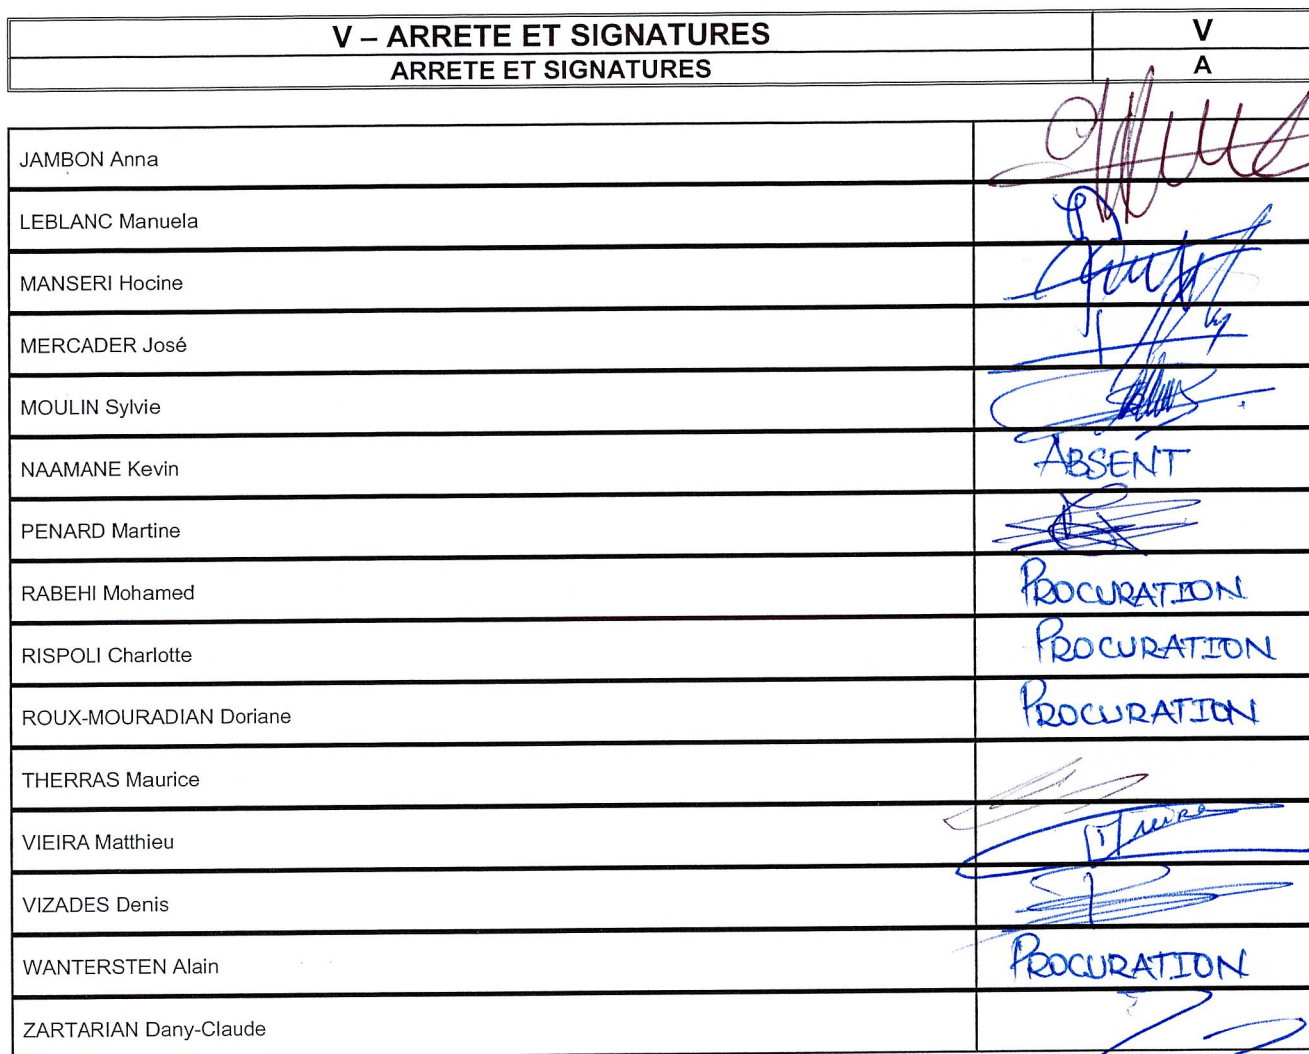 V – ARRETE ET SIGNATURES V
ARRETE ET SIGNATURES A
JAMBON Anna
LEBLANC Manuela
MANSERI Hocine
MERCADER José
MOULIN Sylvie
NAAMANE Kevin ABSENT
PENARD Martine
RABEHI Mohamed PROCURATION
RISPOLI Charlotte PROCURATION
ROUX-MOURADIAN Doriane PROCURATION
THERRAS Maurice
VIEIRA Matthieu
VIZADES Denis
WANTERSTEN Alain PROCURATION
ZARTARIAN Dany-Claude